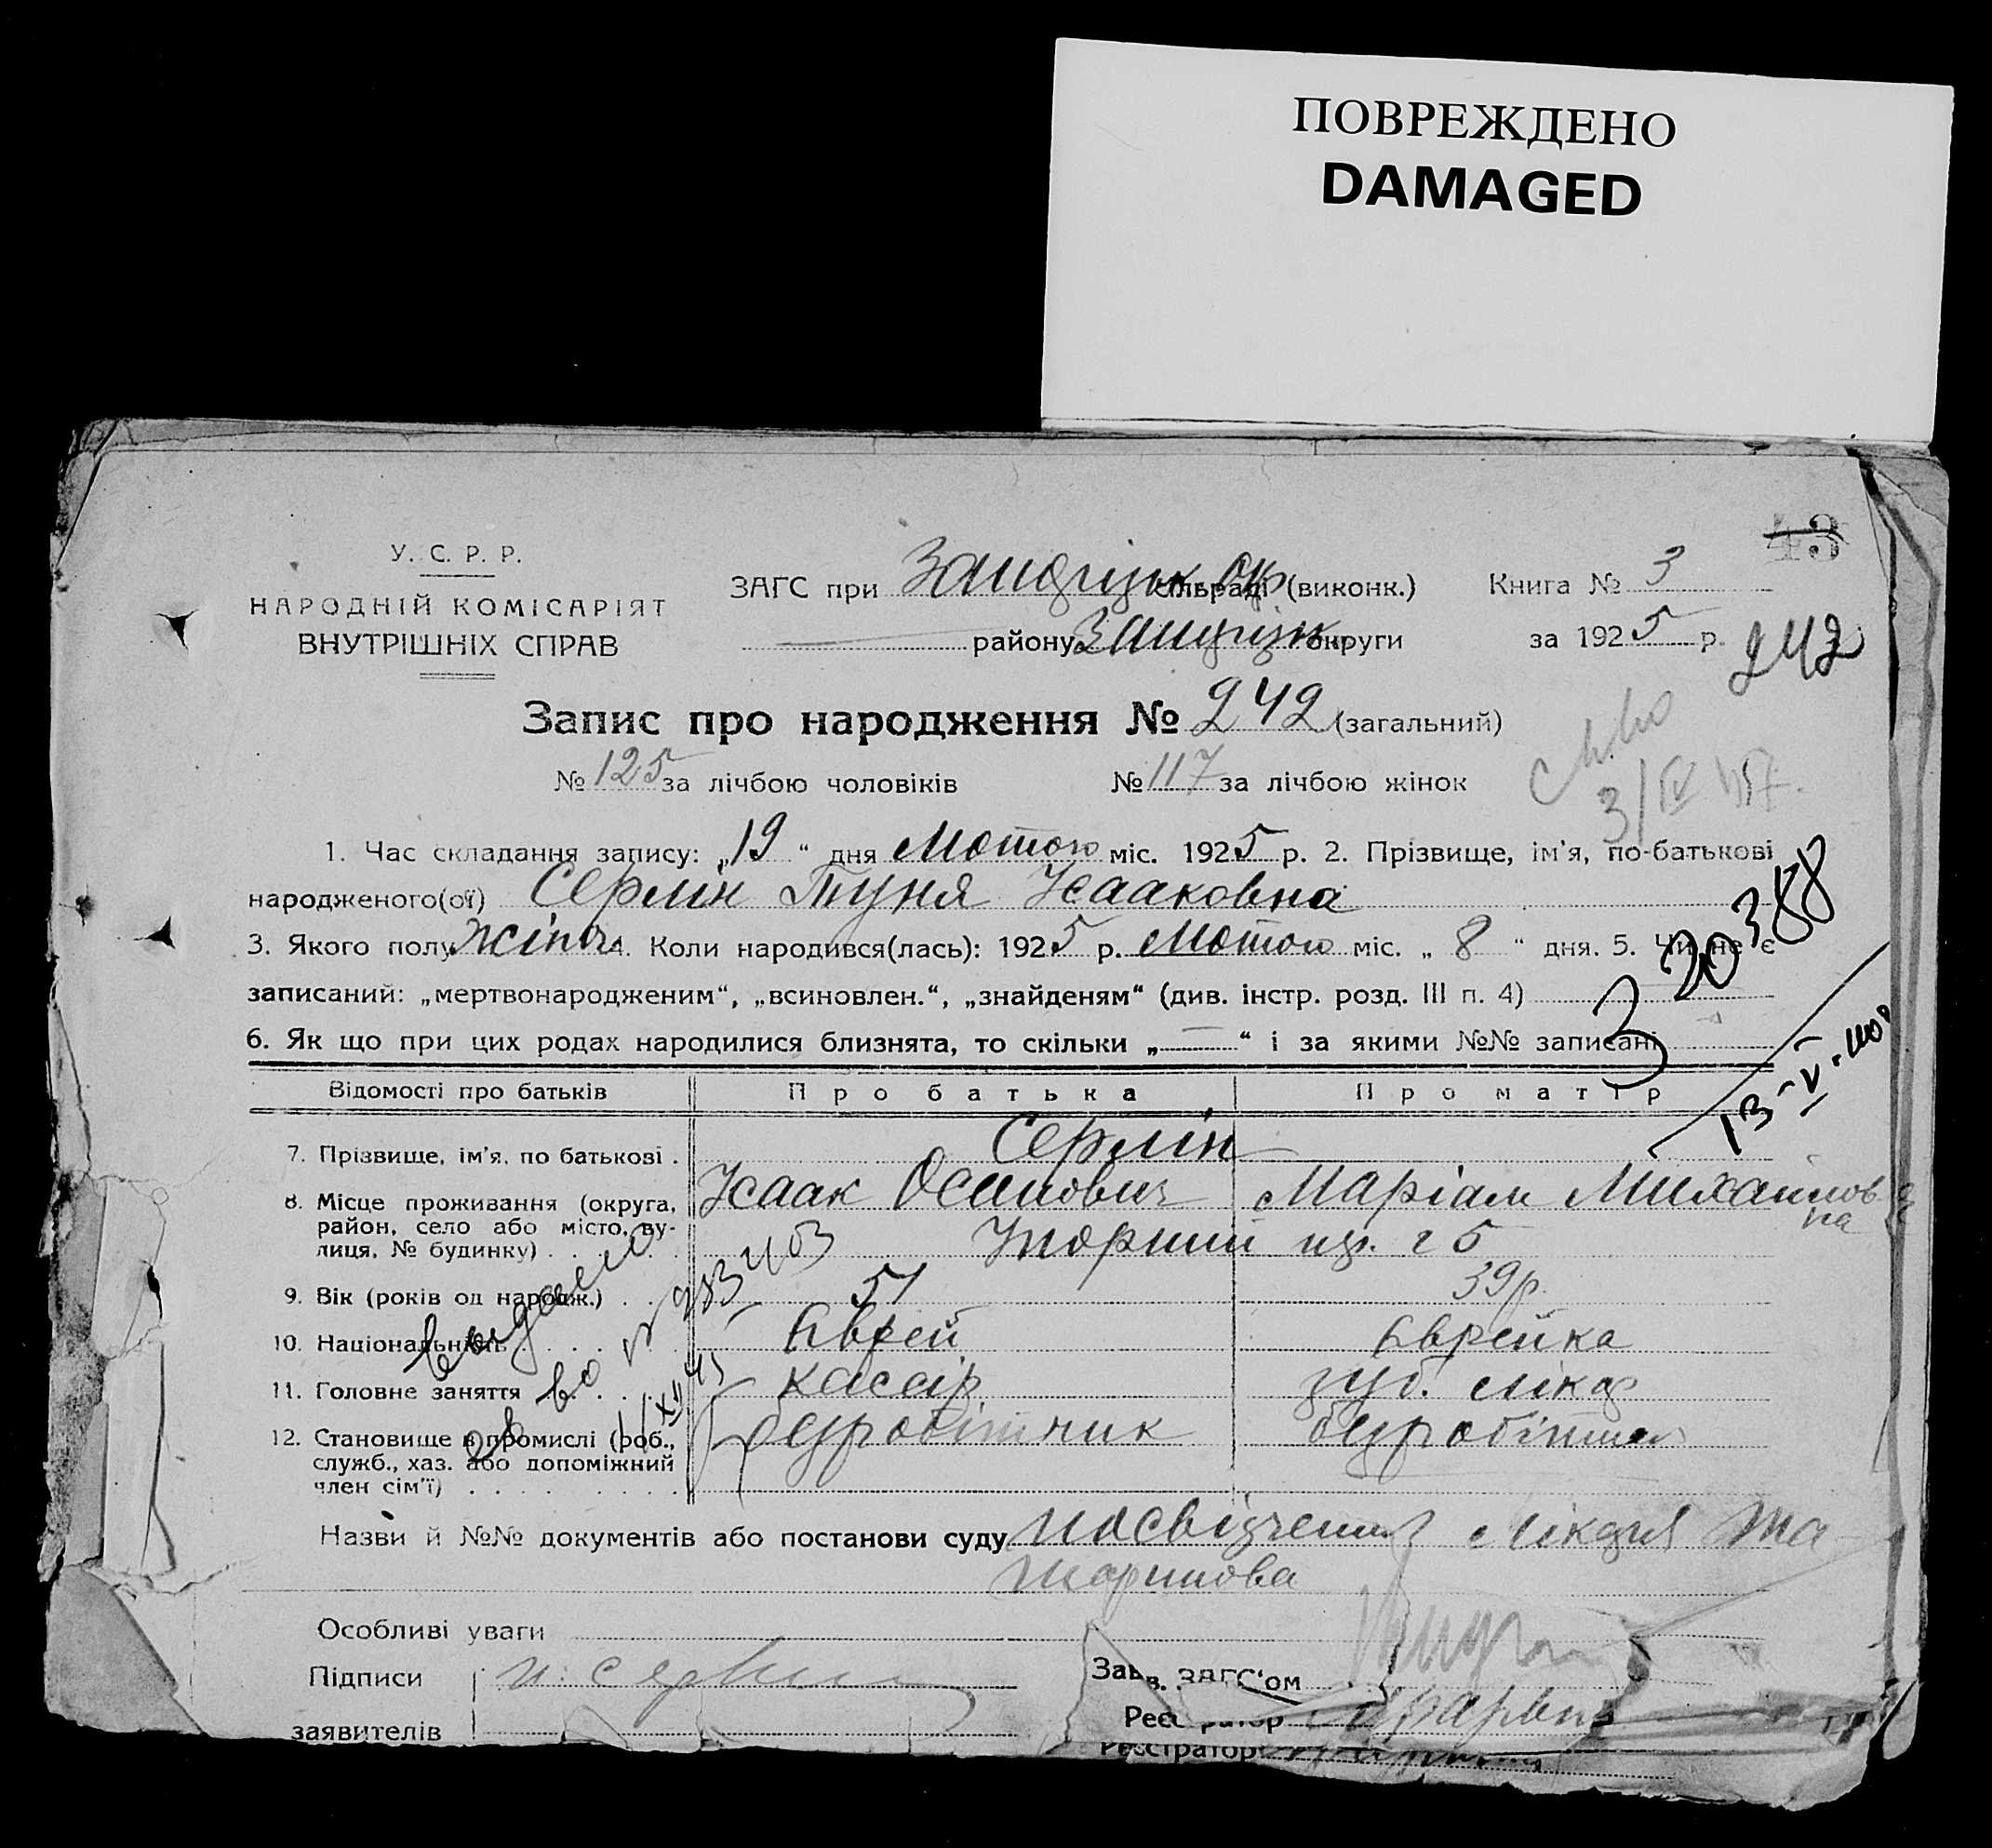 ПОВРЕЖДЕНО
DAMAGED
43
У. С. Р. Р.
НАРОДНІЙ КОМІСАРІЯТ
ВНУТРІШНІХ СПРАВ
ЗАГС при сільраді (виконк.) Книга № 3
району округи за 1925 р.
242
Запис про народження № 242 (загальний)
№ 125 за лічбою чоловіків № 117 за лічбою жінок
3/IV
1. Час складання запису: „19“ дня Лютого міс. 1925 р. 2. Прізвище, ім'я, по-батькові
народженого(ої) Серлін Туня Ісааковна
3. Якого полу жіноч 4. Коли народився(лась): 1925 р. Лютого міс. „8“ дня. 5. Чи не є
записаний: „мертвонародженим“, „всиновлен.“, „знайденям“ (див. інстр. розд. III п. 4)
3 20388
6. Як що при цих родах народилися близнята, то скільки „—“ і за якими №№ записані
Відомості про батьків Про батька Про матір
7. Прізвище, ім'я, по батькові . Серлін
8. Місце проживання (округа, район, село або місто, вулиця, № будинку) . . Ісаак Осипович Маріам Михайловна
5
9. Вік (років од народж.) . . 51 39р.
10. Національність . . . . Єврей Єврейка
11. Головне заняття . . . касір зуб. лікар
12. Становище в промислі (роб., служб., хаз. або допоміжний член сім'ї) . . . . . . безробітник безробітня
выдано
Назви й №№ документів або постанови суду посвідчення лікаря та
Особливі уваги
Підписи
заявителів
Зав. ЗАГС'ом
Реєстратор
Реєстратор